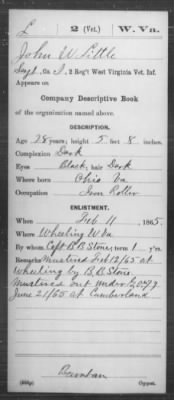 L 2 (Vet.) W. Va.
John W. Little
Co. I, 2 Reg't West Virginia Vet. Inf.
Appears on
Company Descriptive Book
of the organization named above.
DESCRIPTION.
Age 28 years; height 5 feet 8 inches.
Complexion Dark
Eyes Black, hair Dark
Where born Ohio Va
Occupation Iron Roller
ENLISTMENT.
When Feb 11, 1865.
Where Wheeling W Va
By whom Capt B. B. Stone; term 1 y'rs.
Remarks Mustered Feb 12/65 at
Wheeling by B. B. Stone.
Mustered out under G.O.
June 21/65 at Cumberland
Copyist.